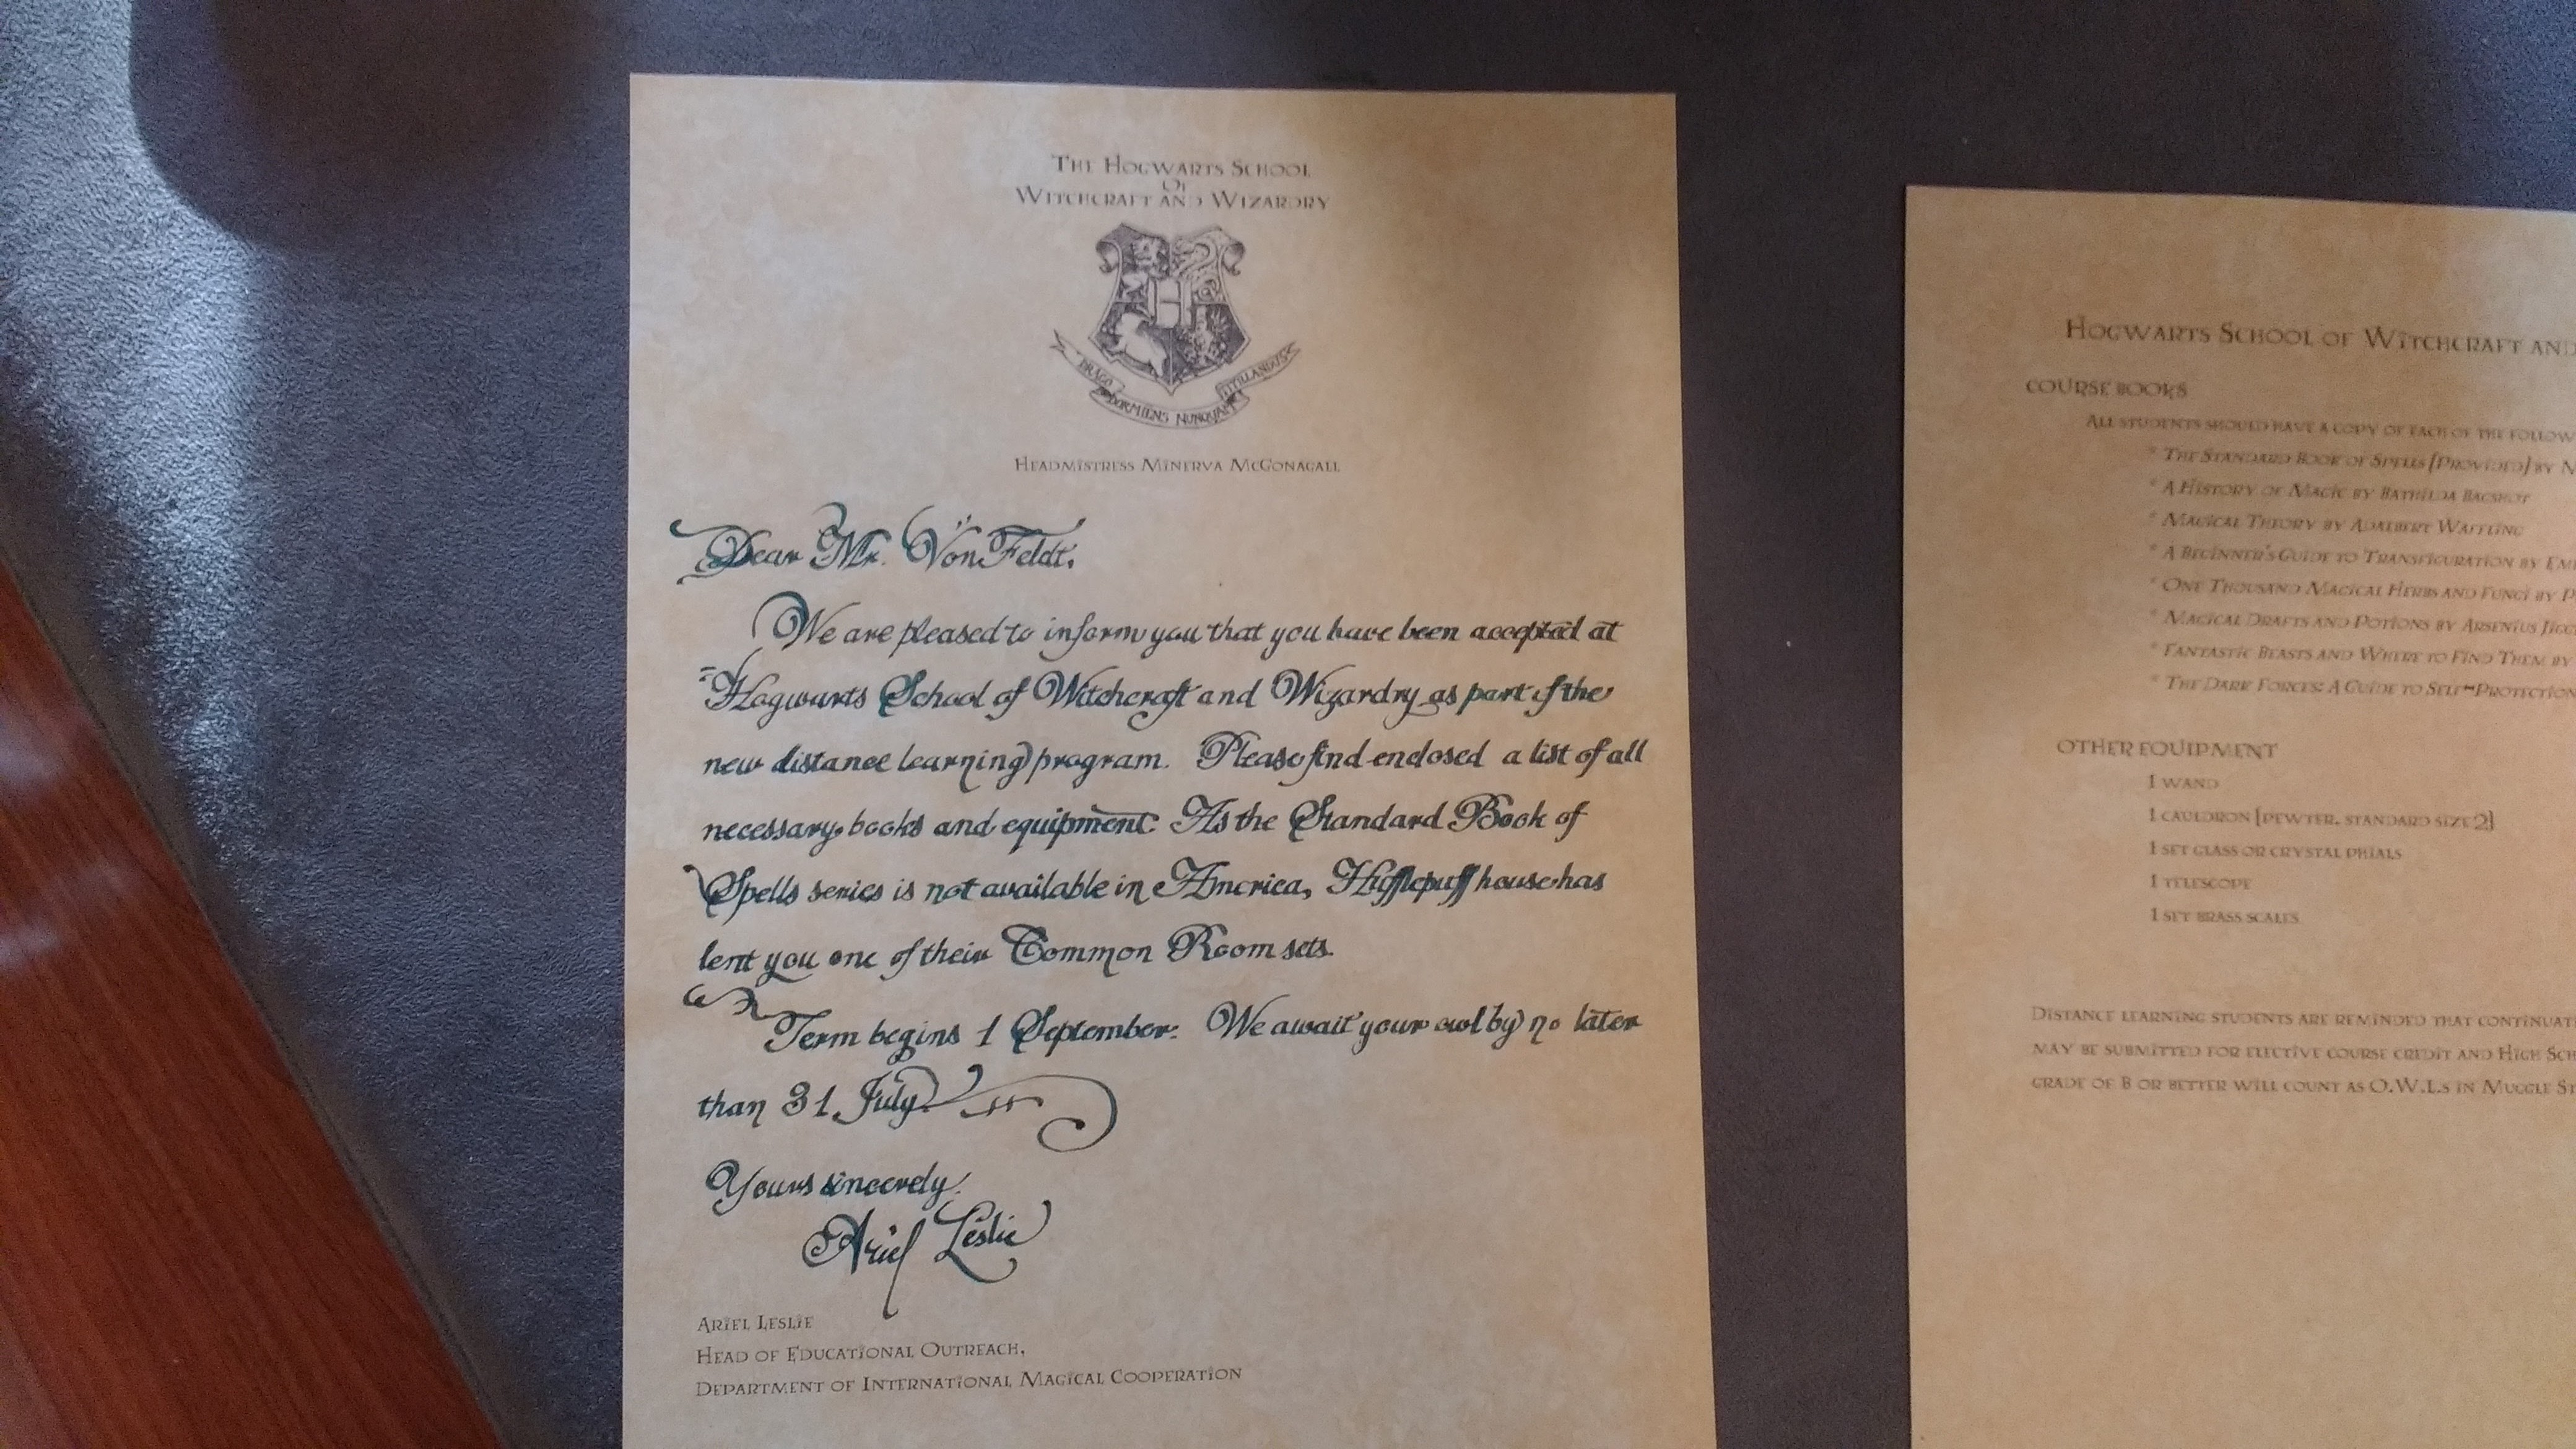 The Hogwarts School
of
Witchcraft and Wizardry
H
DRACO
DORMIENS NUNQUAM
TITILLANDUS
Headmistress Minerva McGonagall
Dear Mr. VonFeldt,
We are pleased to inform you that you have been accepted at
Hogwarts School of Witchcraft and Wizardry as part of the
new distance learning program. Please find enclosed a list of all
necessary books and equipment. As the Standard Book of
Spells series is not available in America, Hufflepuff house has
lent you one of their Common Room sets.
Term begins 1 September. We await your owl by no later
than 31 July
Yours sincerely,
Ariel Leslie
Ariel Leslie
Head of Educational Outreach,
Department of International Magical Cooperation
Hogwarts School of Witchcraft and
COURSE BOOKS
All students should have a copy of each of the follow
* The Standard Book of Spells [Provided] by
* A History of Magic by Bathilda Bagshot
* Magical Theory by Adalbert Waffling
* A Beginner's Guide to Transfiguration by
* One Thousand Magical Herbs and Fungi by
* Magical Drafts and Potions by Arsenius
* Fantastic Beasts and Where to Find Them by
* The Dark Forces: A Guide to Self-Protection
OTHER EQUIPMENT
1 wand
1 cauldron [pewter, standard size 2]
1 set glass or crystal phials
1 telescope
1 set brass scales
Distance learning students are reminded that
may be submitted for elective course credit and High
grade of B or better will count as O.W.L.s in Muggle